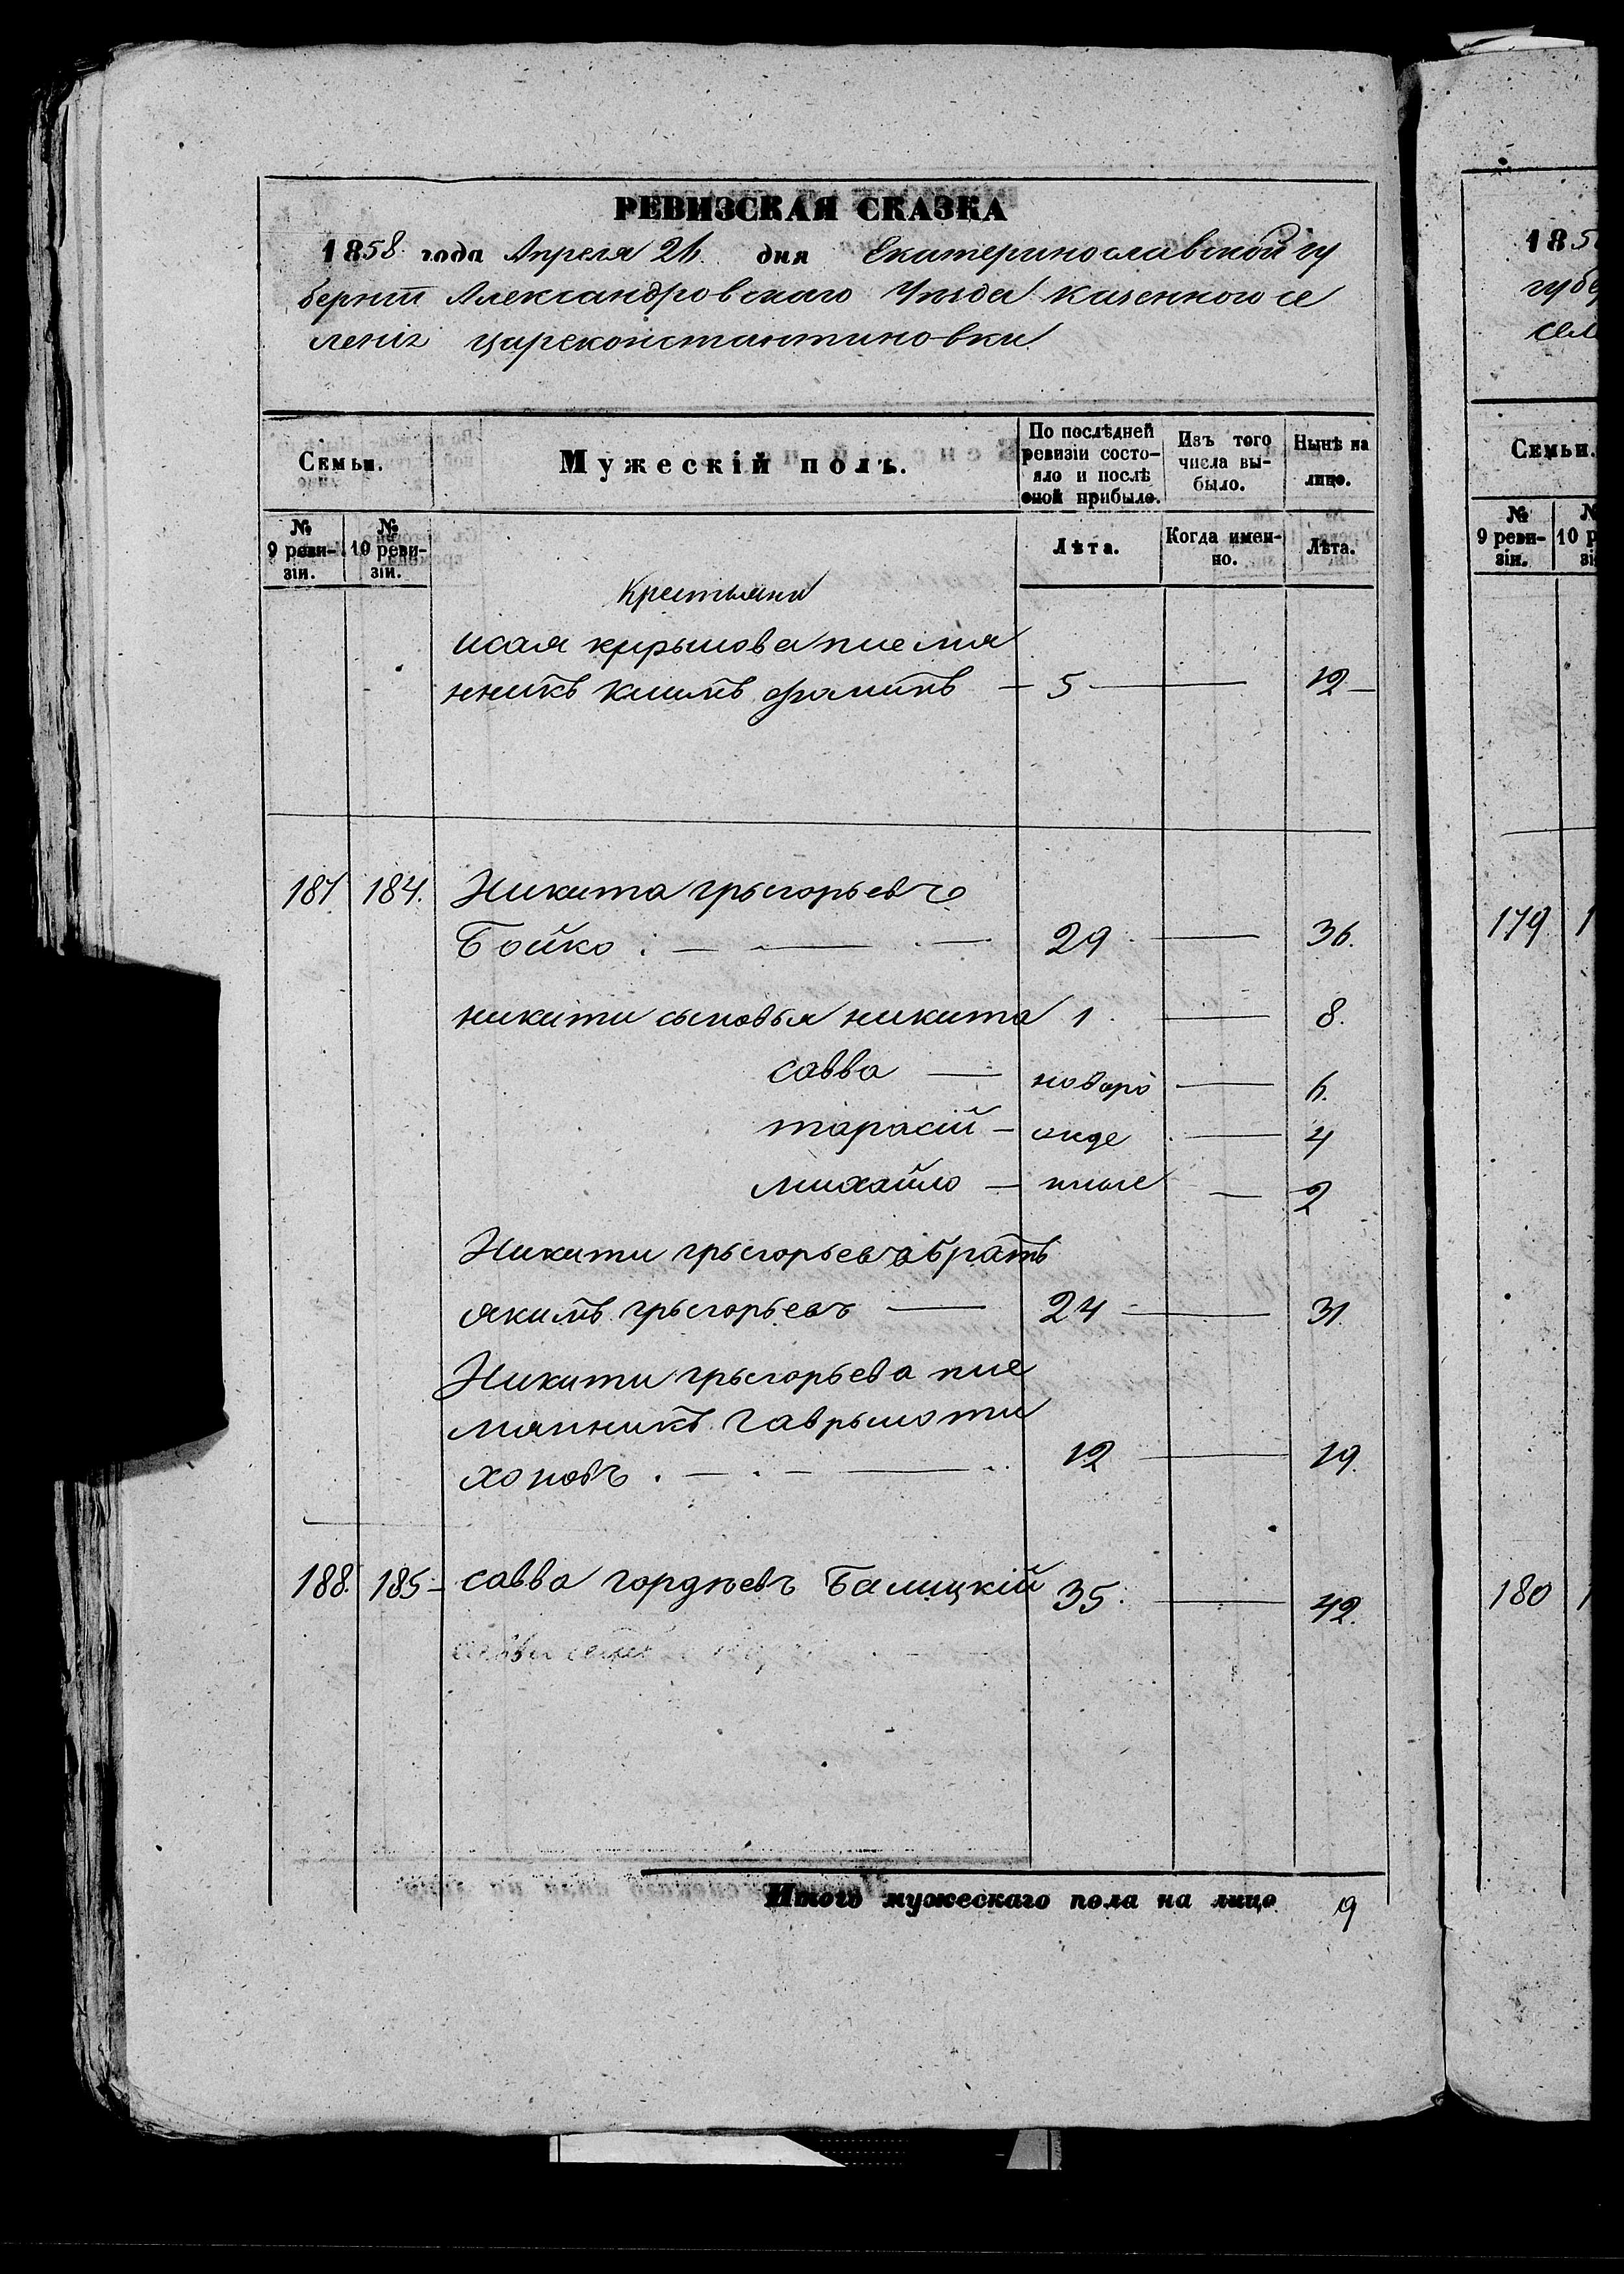 РЕВИЗСКАЯ СКАЗКА
1858 года Апреля 26 дня Екатеринославской гу
берніи Александровскаго Уезда казенного се
ленія Цареконстантиновки
Семьи.
Мужескій полъ.
По послѣдней ревизіи состояло и послѣ оной прибыло.
Изъ того числа выбыло.
Нынѣ на лицо.
№ 9 ревизіи.
№ 10 ревизіи.
Лѣта.
Когда именно.
Лѣта.
Крестьяни
исая кирылова племя
нникъ климъ фоминъ — 5 — 12
187 184. Никита грыгорьевъ
Бойко : — 29 — 36.
никити сыновья никита 1 — 8.
савва — новоро — 6.
тарасій — жде — 4
михайло — нные — 2
Никити грыгорьева братъ
якимъ грыгорьевъ — 24 — 31
Никити грыгорьева пле
мянникъ гаврыло ти
хоновъ . — 12 — 19.
188. 185 савва гордѣевъ Балицкій 35. — 42.
Итого мужескаго пола на лицо 9
185
губе
сел
Семьи.
№ 9 ревизіи.
179
180